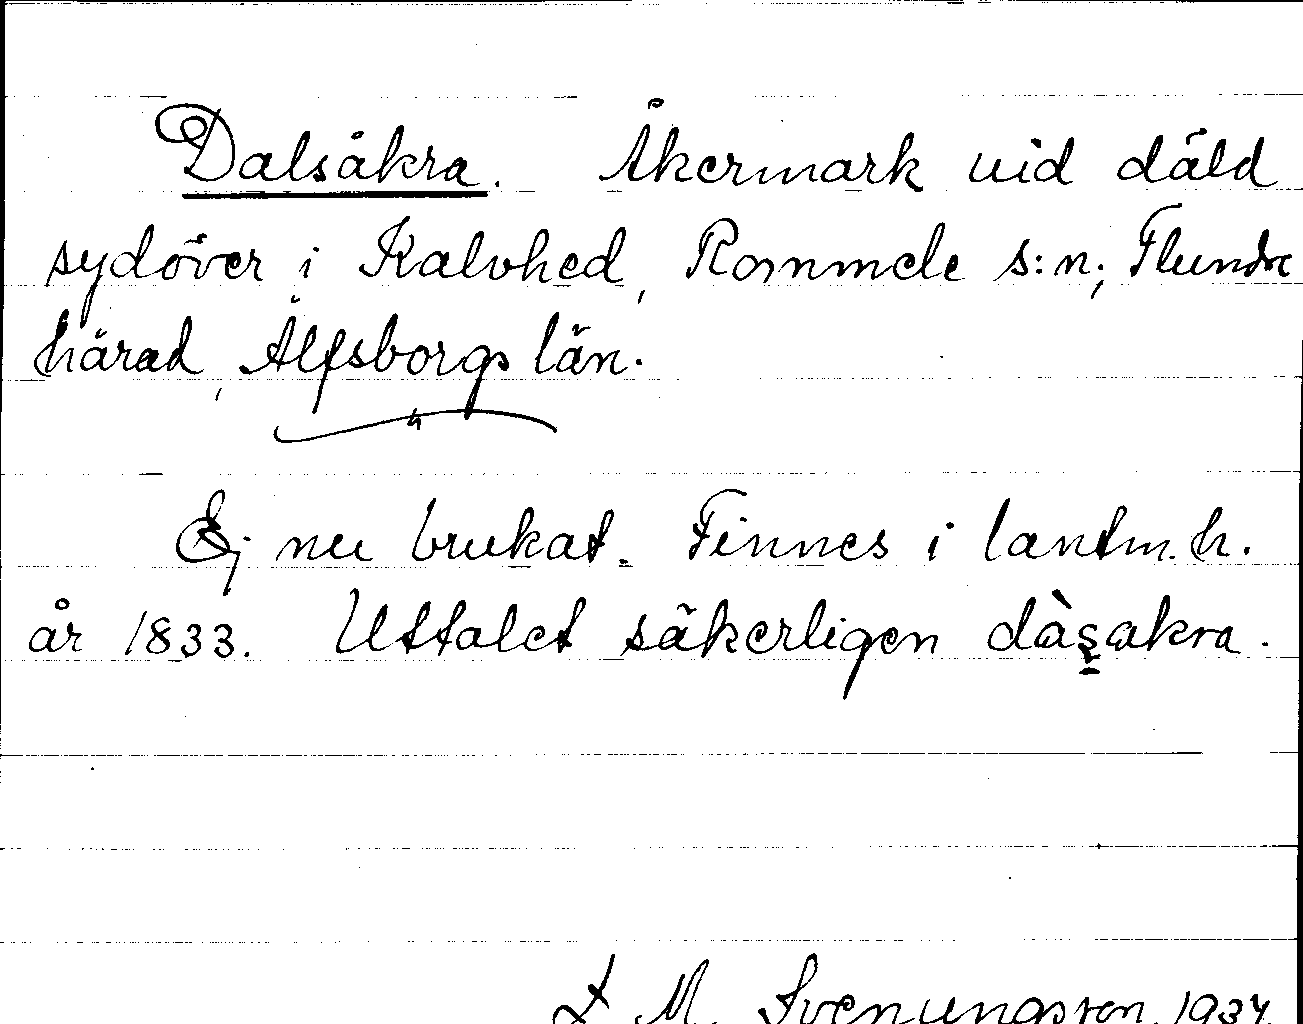 Dalsåkra. Åkermark vid däld
sydöver i Kalvhed, Rommele s:n, Flundre
härad, Älfsborgs län.
Ej nu brukat. Finnes i lantm.h.
år 1833. Uttalet säkerligen dàs̱akra.
L M. Svenungsson 1934.